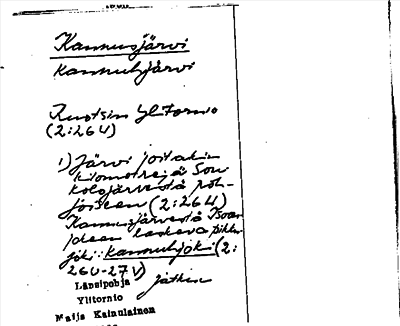 Kannusjärvi
kannuhjärvi
Ruotsin Ylitornio
(2:264)
1) Järvi joitakin
kilometrejä Son
kolojärvestä poh-
joiseen (2:264)
Kannusjärvestä Isoon
laskeva pikku
joki: kannuhjoki (2:
260-27V)
jatkuu
Länsipohja
Ylitornio
Maija Kainulainen